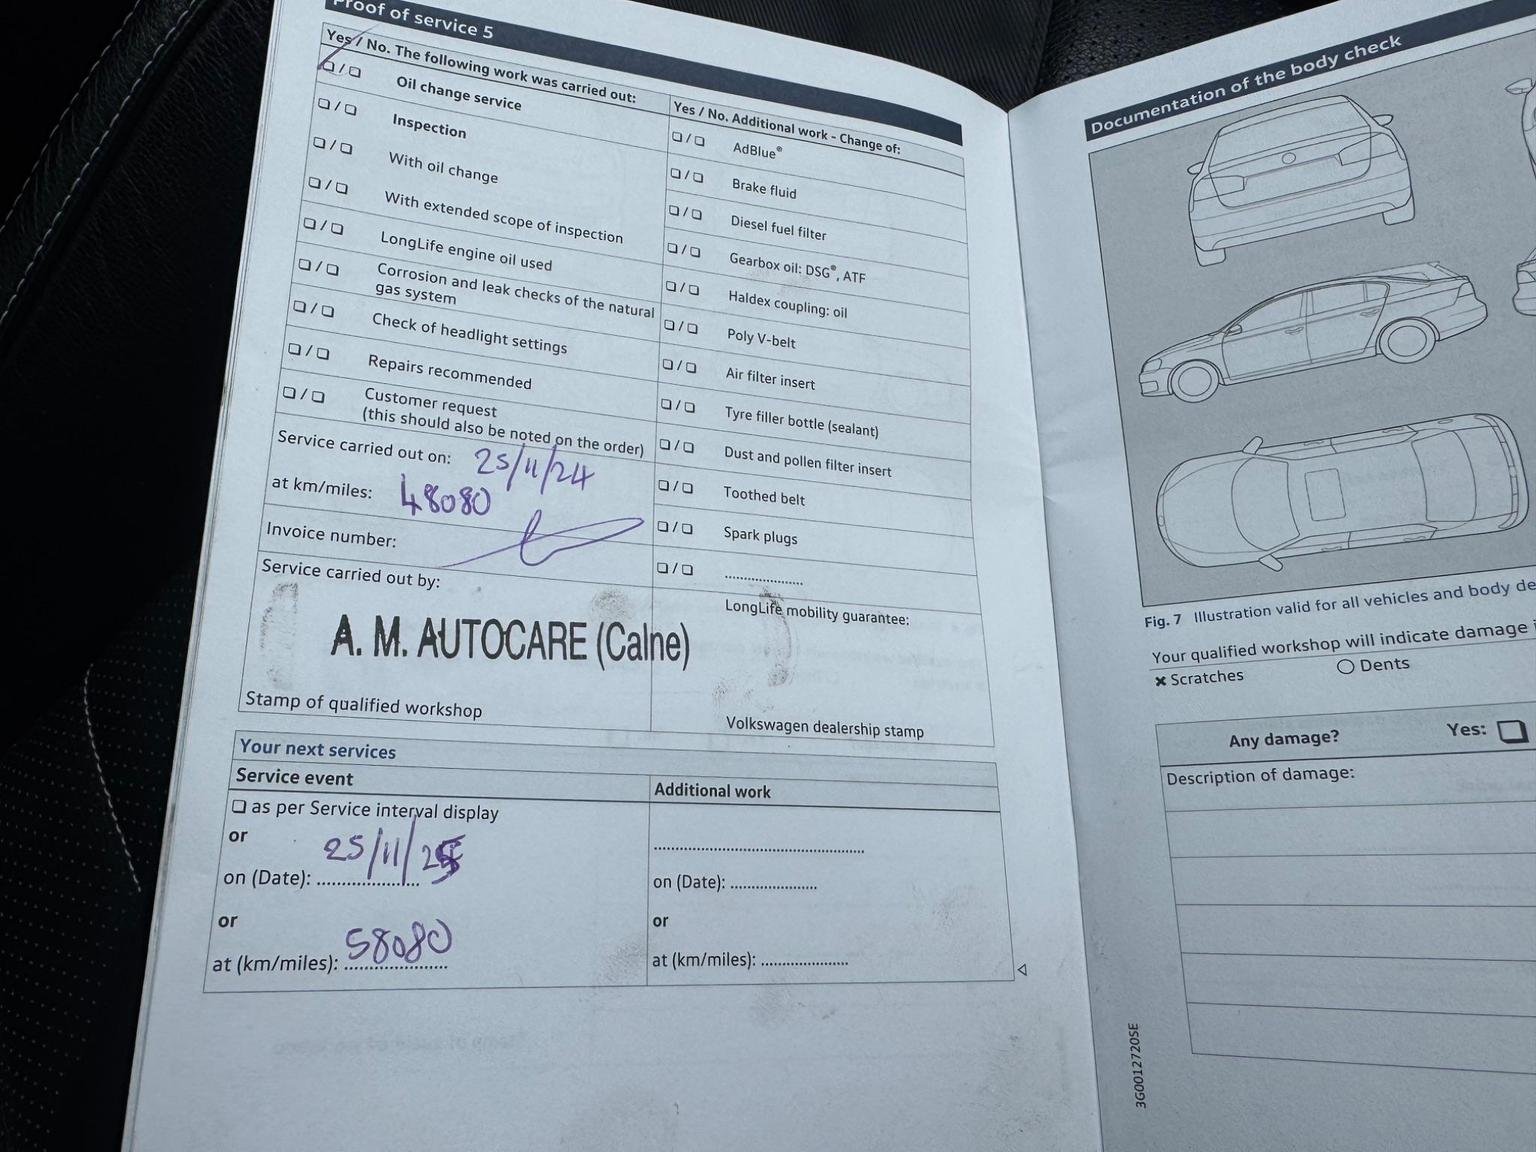 Proof of service 5
Yes / No. The following work was carried out:
❏ / ❏ Oil change service
❏ / ❏ Inspection
❏ / ❏ With oil change
❏ / ❏ With extended scope of inspection
❏ / ❏ LongLife engine oil used
❏ / ❏ Corrosion and leak checks of the natural
gas system
❏ / ❏ Check of headlight settings
❏ / ❏ Repairs recommended
❏ / ❏ Customer request
(this should also be noted on the order)
Service carried out on: 25/11/24
at km/miles: 48080
Invoice number:
Service carried out by:
A. M. AUTOCARE (Calne)
Stamp of qualified workshop
Yes / No. Additional work - Change of:
❏ / ❏ AdBlue®
❏ / ❏ Brake fluid
❏ / ❏ Diesel fuel filter
❏ / ❏ Gearbox oil: DSG®, ATF
❏ / ❏ Haldex coupling: oil
❏ / ❏ Poly V-belt
❏ / ❏ Air filter insert
❏ / ❏ Tyre filler bottle (sealant)
❏ / ❏ Dust and pollen filter insert
❏ / ❏ Toothed belt
❏ / ❏ Spark plugs
❏ / ❏ ....................
LongLife mobility guarantee:
Volkswagen dealership stamp
Your next services
Service event
❏ as per Service interval display
or
on (Date): 25/11/25
or
at (km/miles): 58080
Additional work
on (Date): ....................
or
at (km/miles): ....................
Documentation of the body check
Fig. 7 Illustration valid for all vehicles and body
Your qualified workshop will indicate damage
× Scratches
○ Dents
Any damage? Yes: ❏
Description of damage:
3G0012720SE